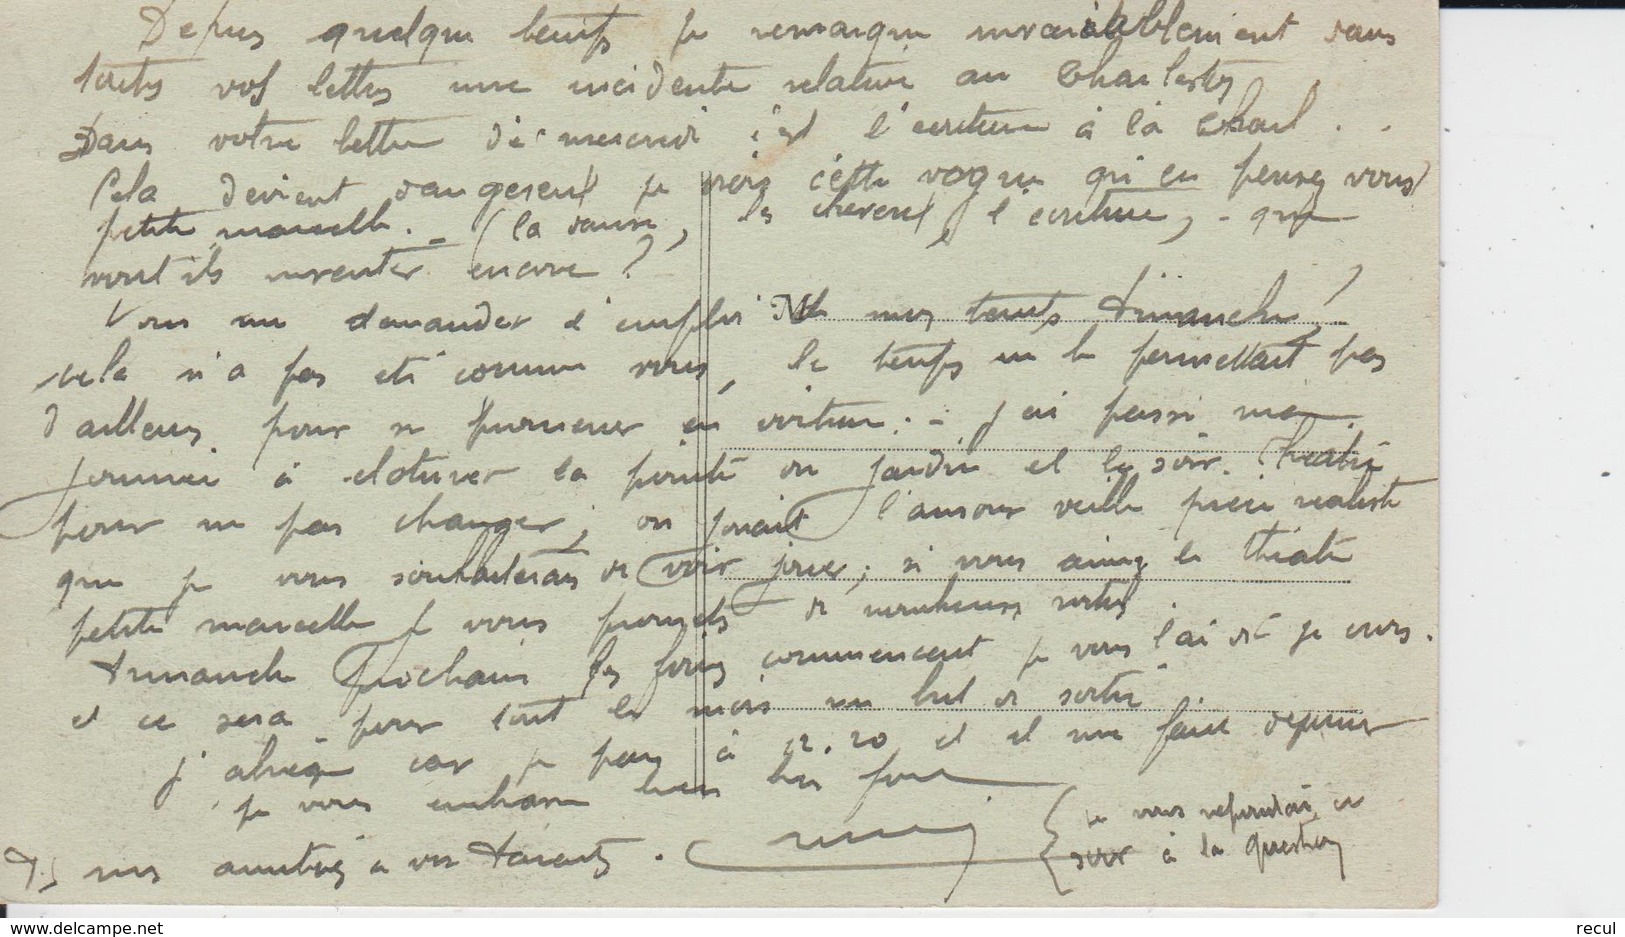 Depuis quelque temps je remarque invariablement dans
toutes vos lettres une incidente relative au Charleston
Dans votre lettre de mercredi c'est l'écriture à la Charl. .
Cela devient dangereux je crois cette vogue qu'en pensez vous
petite marcelle. - (la danse, les cheveux, l'ecriture, - que
vont ils inventer encore ?
Vous me demander l'emploi de mon temps dimanche ?
cela n'a pas été comme vous, le temps ne le permettant pas
d'ailleurs pour se promener en voiture. - j'ai passé ma
journée à cloturer la porte du jardin et le soir. Théatre
pour ne pas changer, on jouait l'amour veille piece realiste
que je vous souhaiterais de voir jouer ; si vous aimez le théatre
petite marcelle je vous promets de nombreuses sorties.
dimanche prochain les foires commencent je vous l'ai dit je crois.
et ce sera pour tout le mois un but de sortie
j'abrège car je pars à 12.20 et il me faut dejeuner
je vous embrasse bien bien fort
mes amitiés à vos parents.
je vous repondrai ce
soir à la question
www.delcampe.net
recul